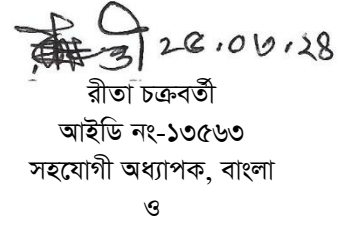 ২৫.০৩.২৪
রীতা চক্রবর্তী
আইডি নং-১৩৫৬৩
সহযোগী অধ্যাপক, বাংলা
ও